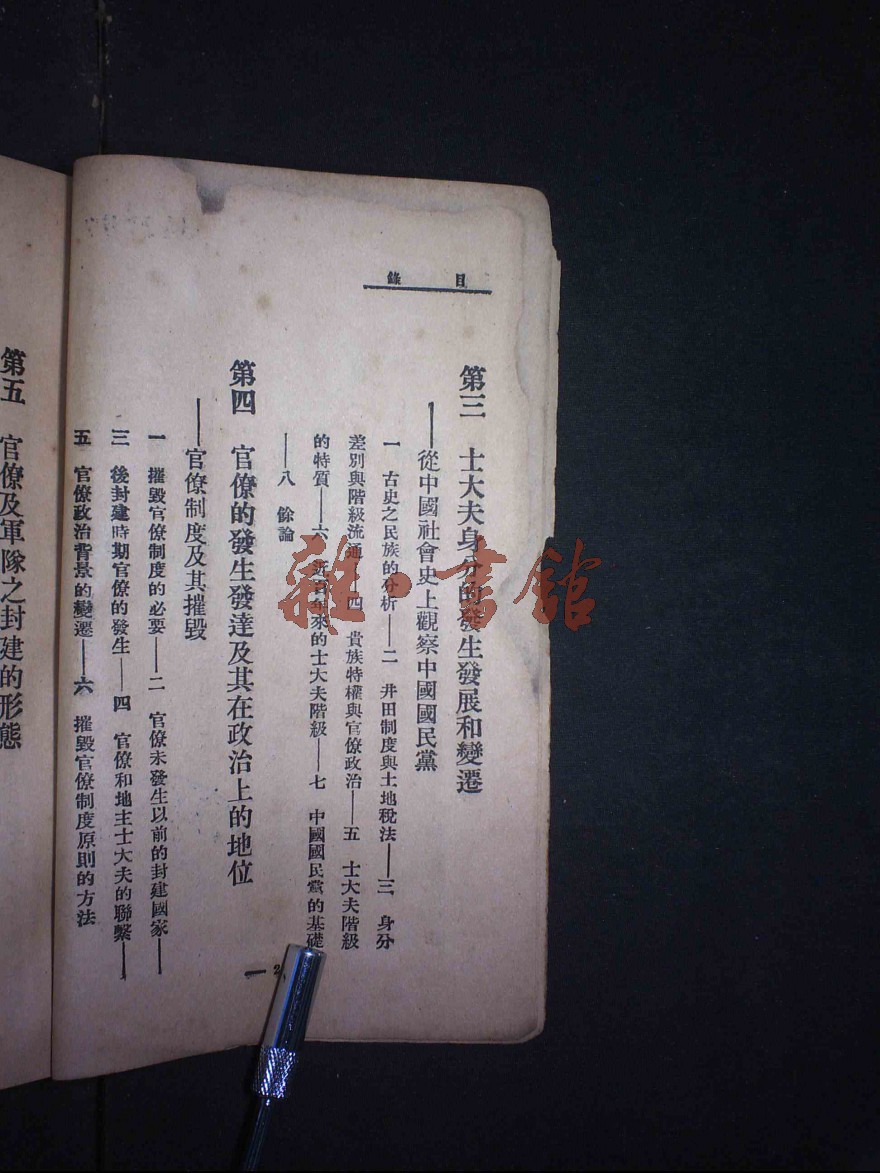 目錄
第三　士大夫身分的發生發展和變遷
——從中國社會史上觀察中國國民黨
一　古史之民族的分析——二　井田制度與土地稅法——三　身分
差別與階級流通——四　貴族特權與官僚政治——五　士大夫階級
的特質——六　近百年來的士大夫階級——七　中國國民黨的基礎
——八　餘論
第四　官僚的發生發達及其在政治上的地位
——官僚制度及其摧毀
一　摧毀官僚制度的必要——二　官僚未發生以前的封建國家——
三　後封建時期官僚的發生——四　官僚和地主士大夫的聯繫——
五　官僚政治背景的變遷——六　摧毀官僚制度原則的方法
2
第五　官僚及軍隊之封建的形態
雜·書館